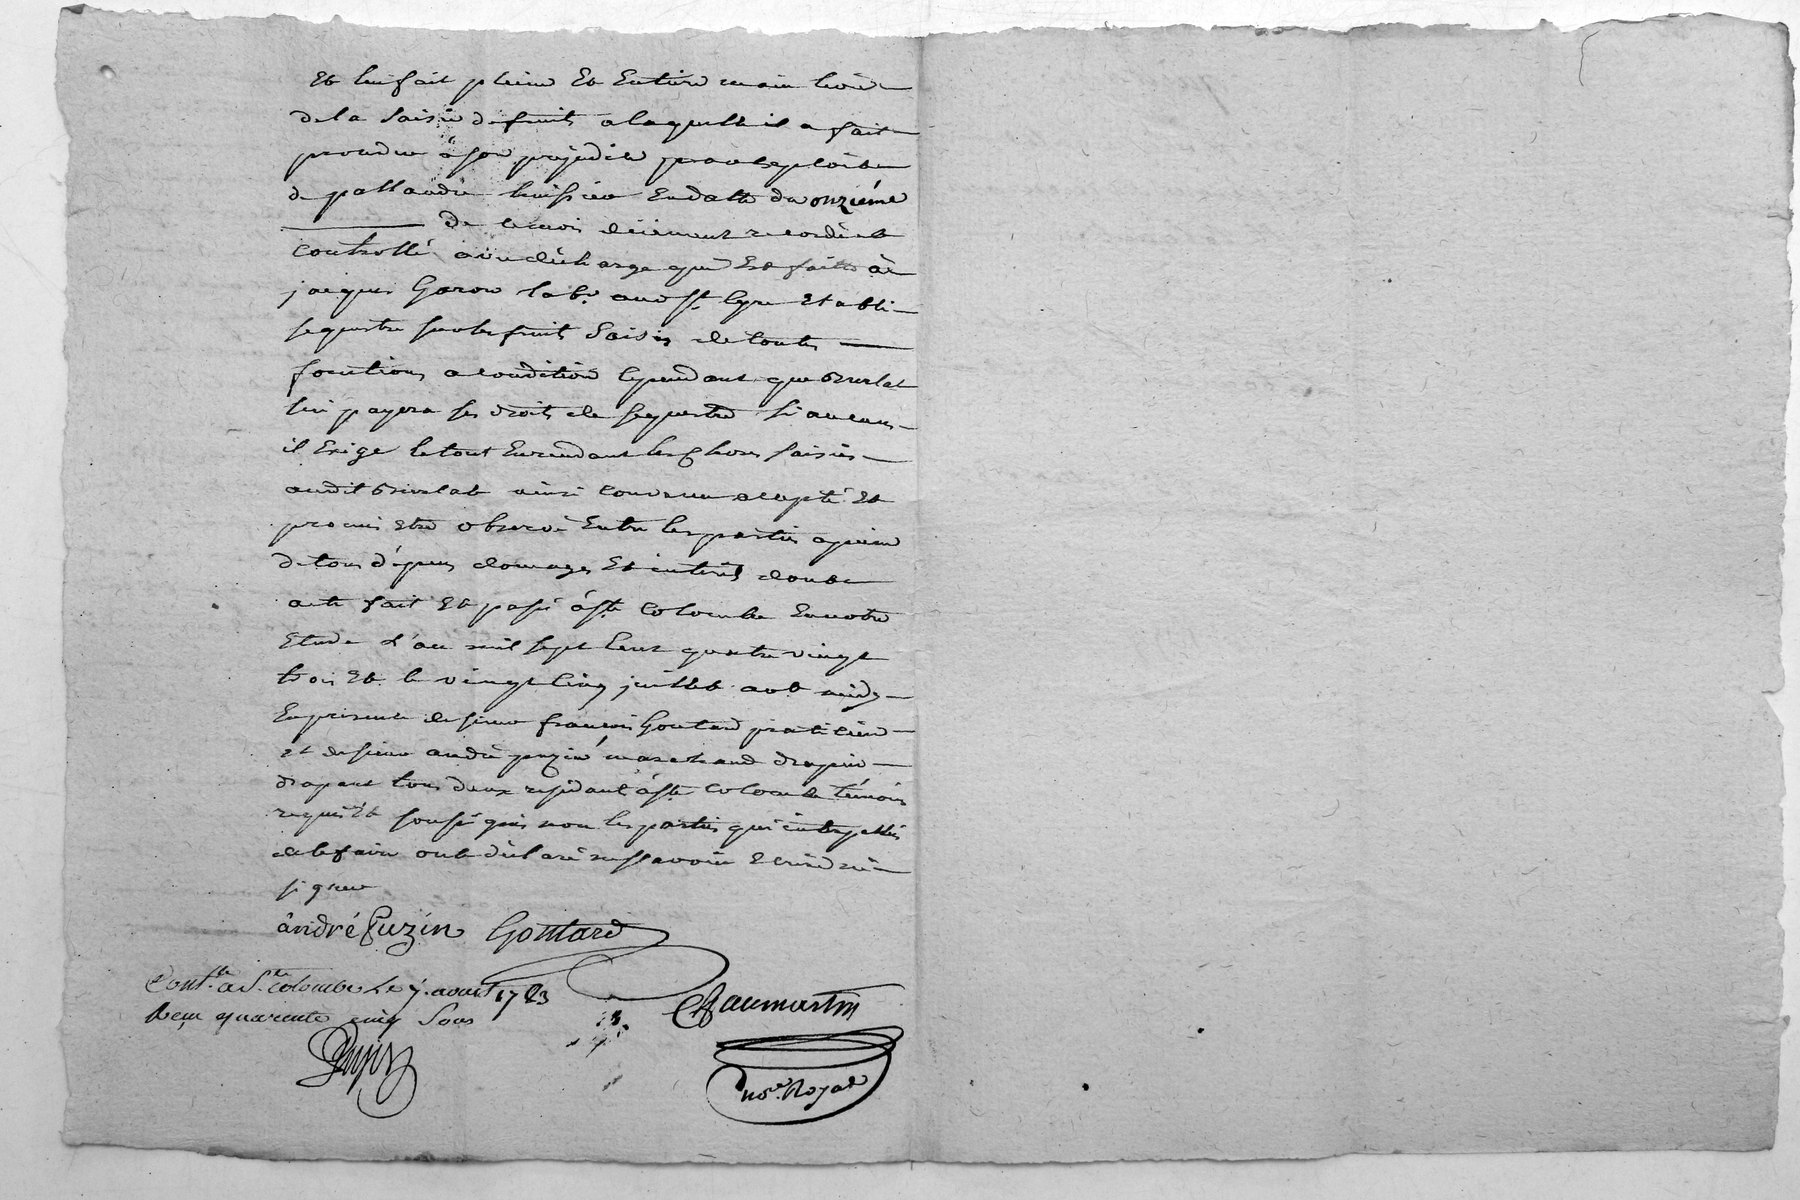 Et lui fait pleine Et Entiere main levée
de la Saisie de fruits a laquelle il a fait
proceder à son prejudice par exploit de
de pallandre huissier En datte du onziéme
de ce mois dëüement recordé et
controllé avec décharge qui Est faitte à
jacques Garon lab.r aud St Cyre Etabli
sequestre sur les fruits Saisis de toutes
fonctions a condition cependant que Brurlat
lui payera ses droits de sequestre si aucuns
il Exige le tout En rendant les choses saisies
audit Brurlat ainsi convenu accepté Et
promis Etre observé Entre les parties a peine
de tous dépens domages Et interets dont
acte fait Et passé à Ste Colombe En notre
Etude l'an mil sept cent quatre vingt
trois Et le vingt cinq juillet avt midy
En presence de sieur françois Goutard praticien
et de sieur andré puzin marchand drapier
drapant tous deux residant à Ste Colombe témoins
requis Et soussignés non les parties qui interpellées
de le faire ont déclaré ne sçavoir Ecrire ni
signer
àndré Puzin Goutard
Cont.lé a S.te Colombe Le 7. aoust 1783
Reçu quarente cinq Sous
Chaumartin
no.re Royal